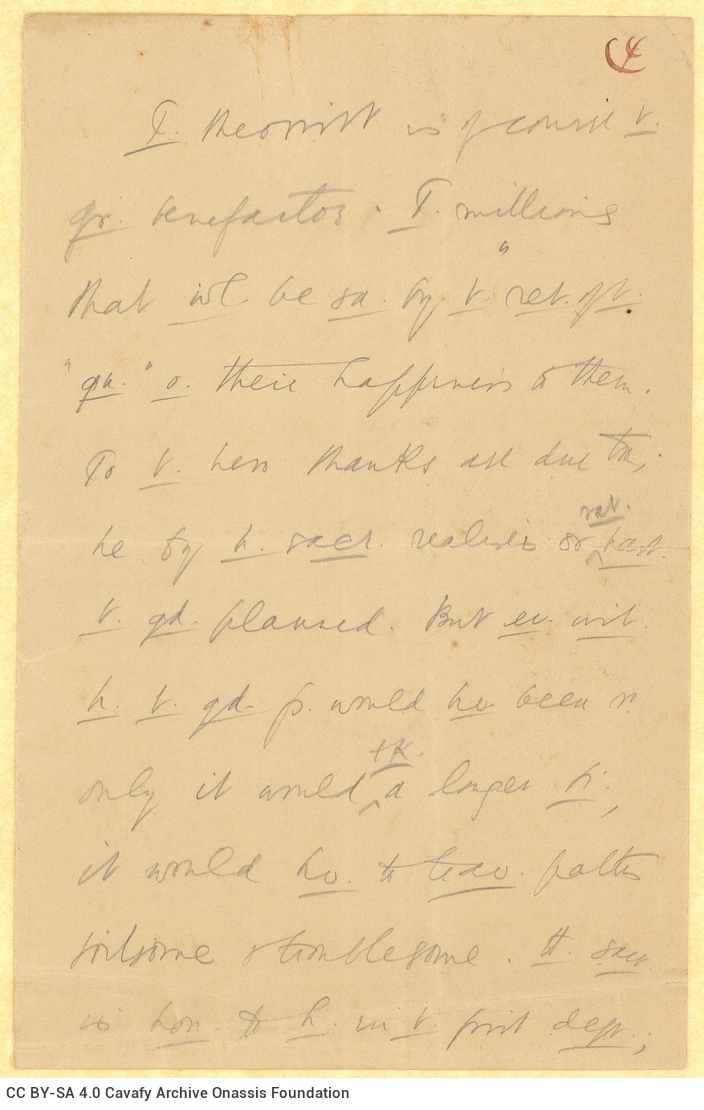 4
T. theorist is of course t.
gr. benefactor. T. millions
that wl. be sa. by t. "ret. of t.
"qu." o. their happiness to them.
To t. hero thanks are due too;
he by h. sacr. realises or
rat.
hast.
t. gd. planned. But ev. wit.
h. t. gd. p. would he. been r.
only it would a longer ti.,
tk.
it would he. to trav. paths
toilsome & troublesome. tt. sacr.
is hon. to h. in t. first degr.;
CC BY-SA 4.0 Cavafy Archive Onassis Foundation